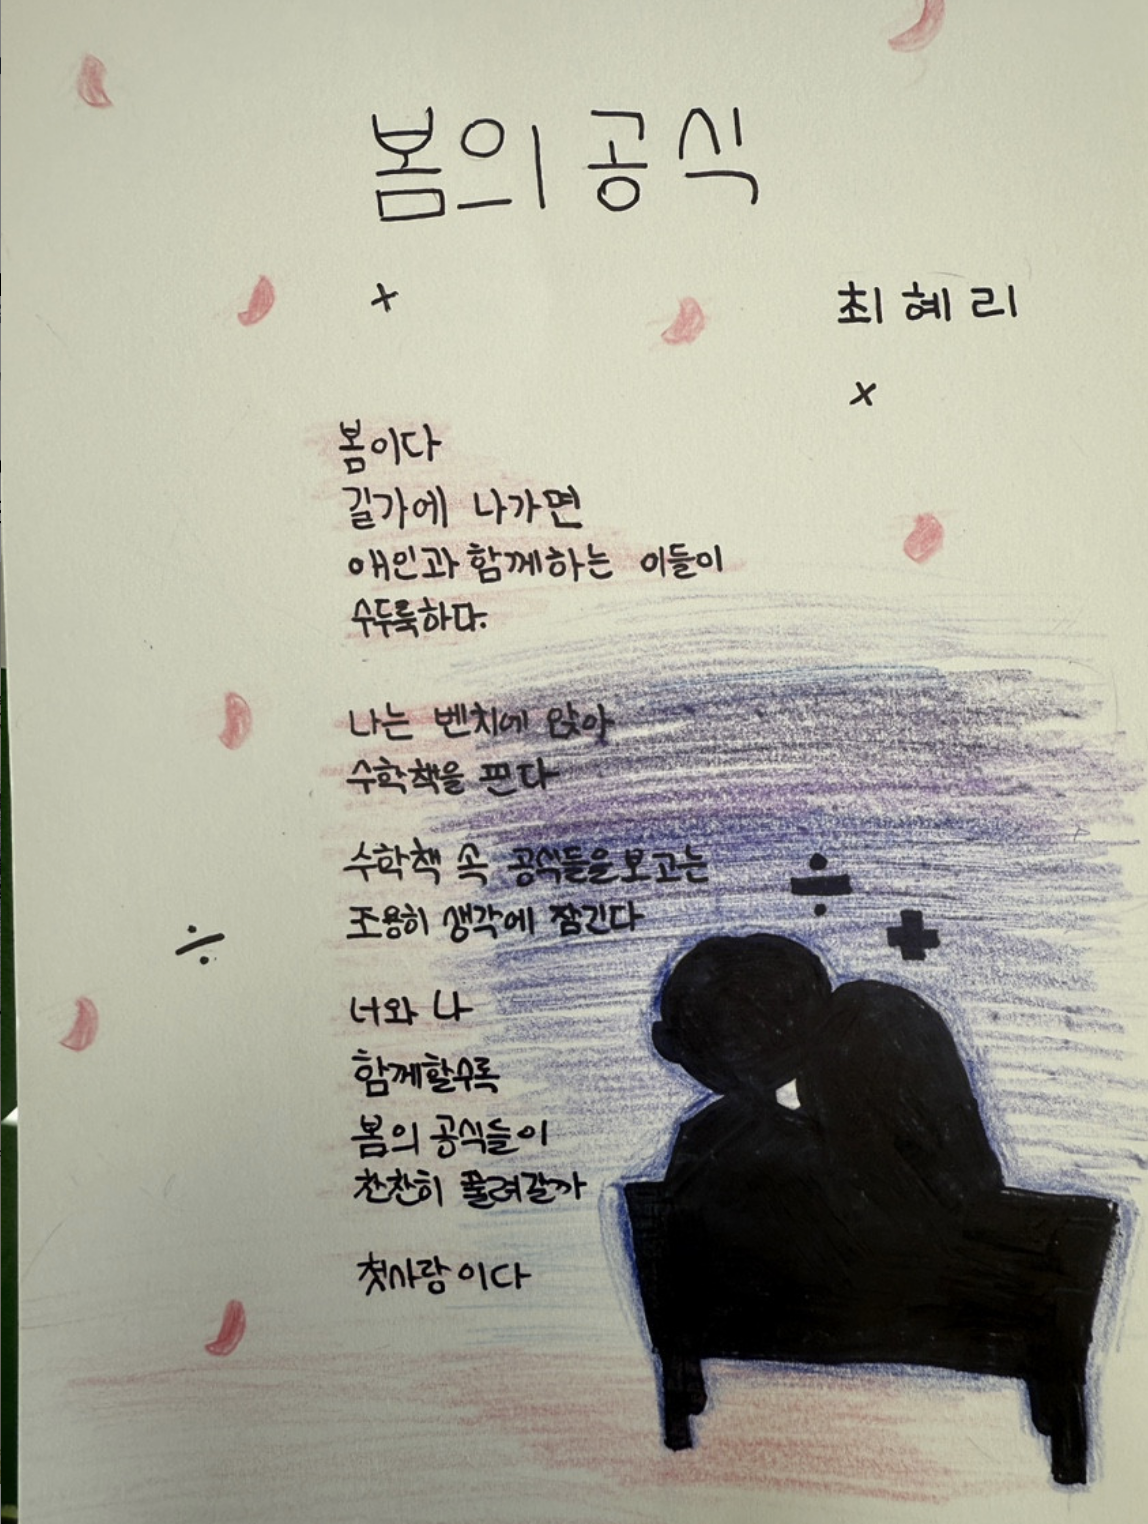 봄의 공식
+
최혜리
×
봄이다
길가에 나가면
애인과 함께하는 이들이
수두룩하다.
나는 벤치에 앉아
수학책을 핀다
수학책 속 공식들을 보고는
조용히 생각에 잠긴다
÷ +
÷
너와 나
함께할수록
봄의 공식들이
찬찬히 풀려갈까
첫사랑이다